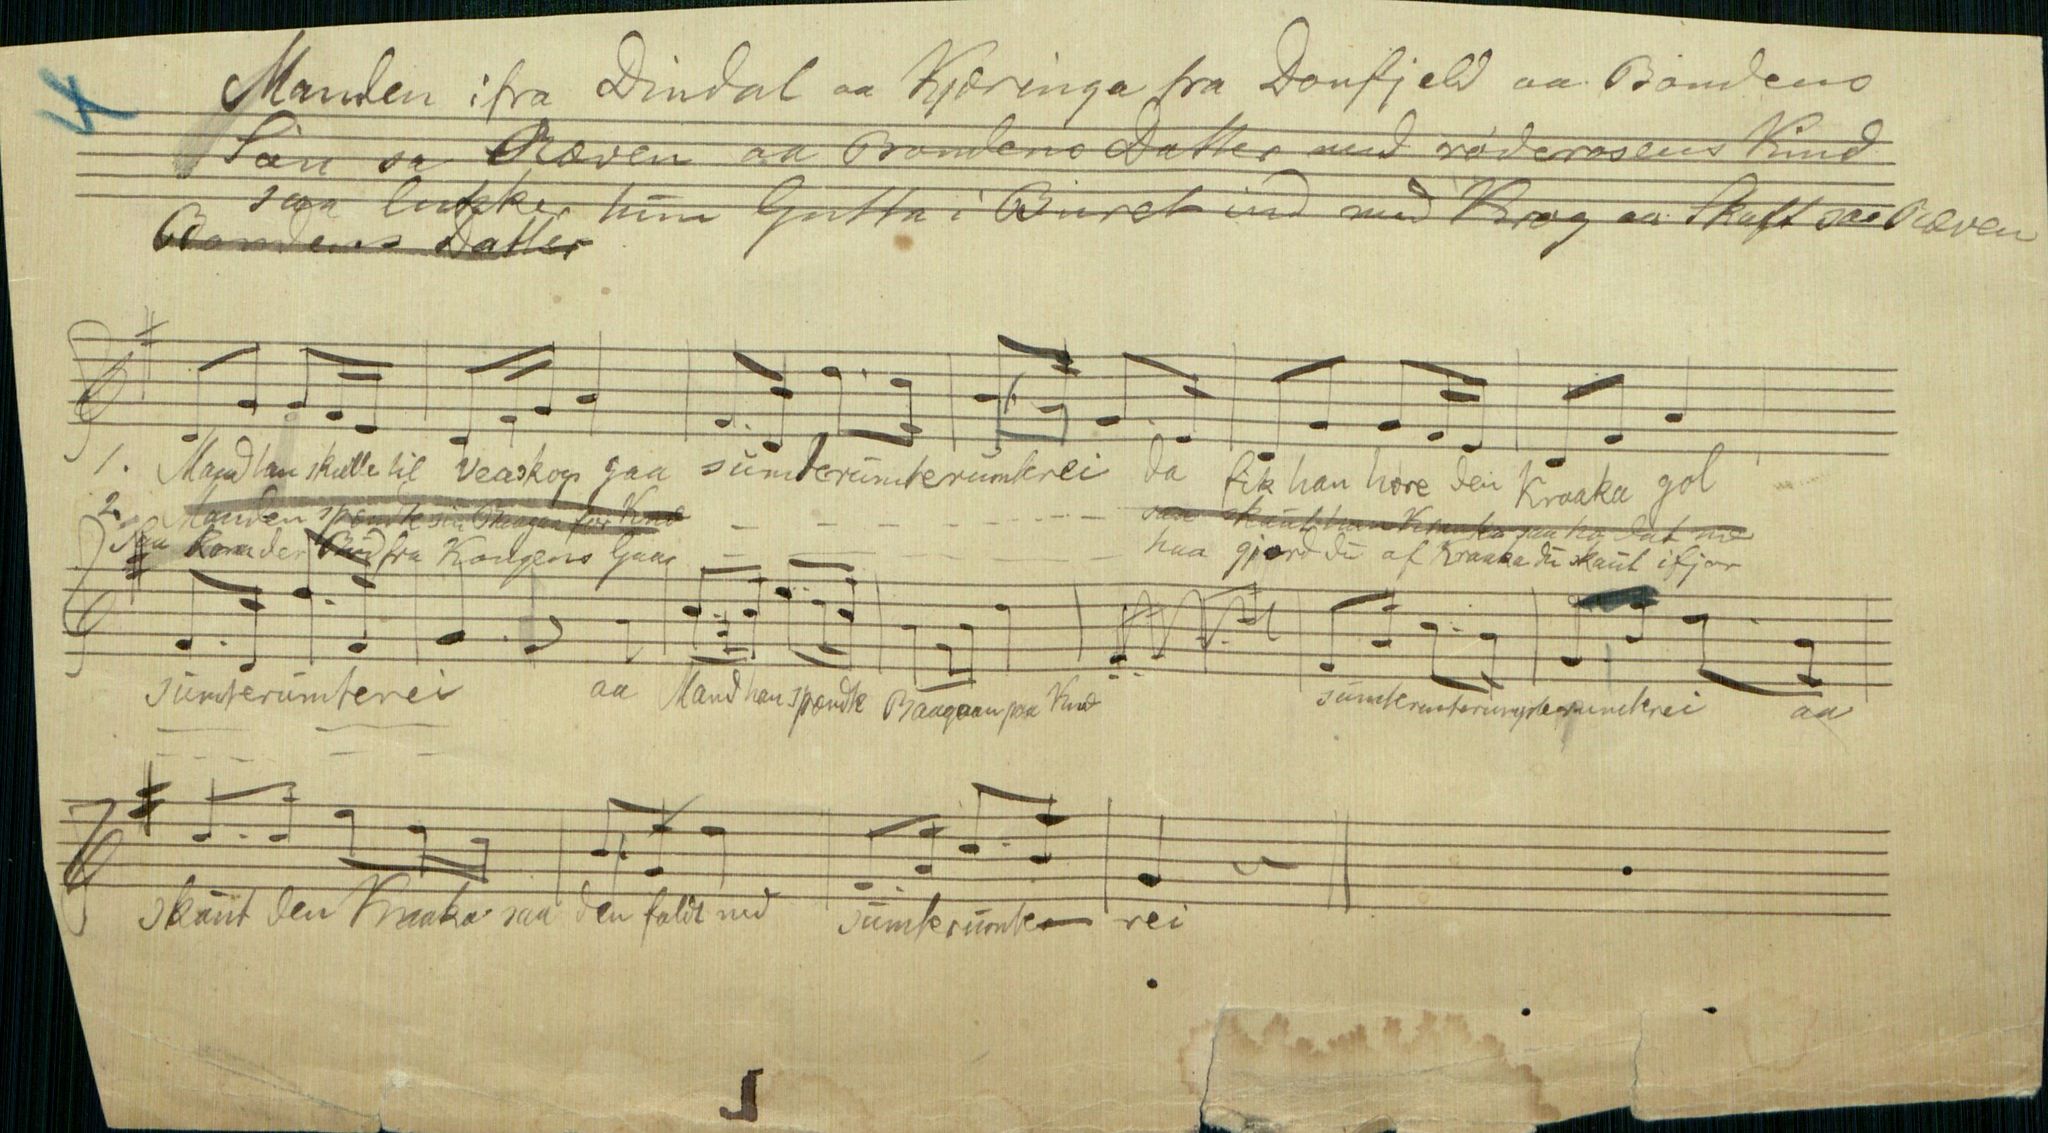 Manden ifra Dindal aa Kjæringa fra Donfjeld aa Bondens
Søn sa Ræven aa Bondens Datter med røderosens Kind
saa lukker hun Gutta i Buret ind med Krog aa Skaft saa Ræven
Bondens Datter
1. Mand han skulle til Veaskog gaa sumterumterumterei da fik han høre den Kraaka gol
2. Manden spændte sin Baagaa for Knæ saa skaut han Kraaka saa ho dat ne
Saa kom der Bud fra Kongens Gaar haa gjord du af Kraaka du skaut ifjor
sumterumterei aa Mand han spændte Baagaan paa Knæ sumterumterumterumterei aa
skaut den Kraaka saa den faldt ned sumterumte rei